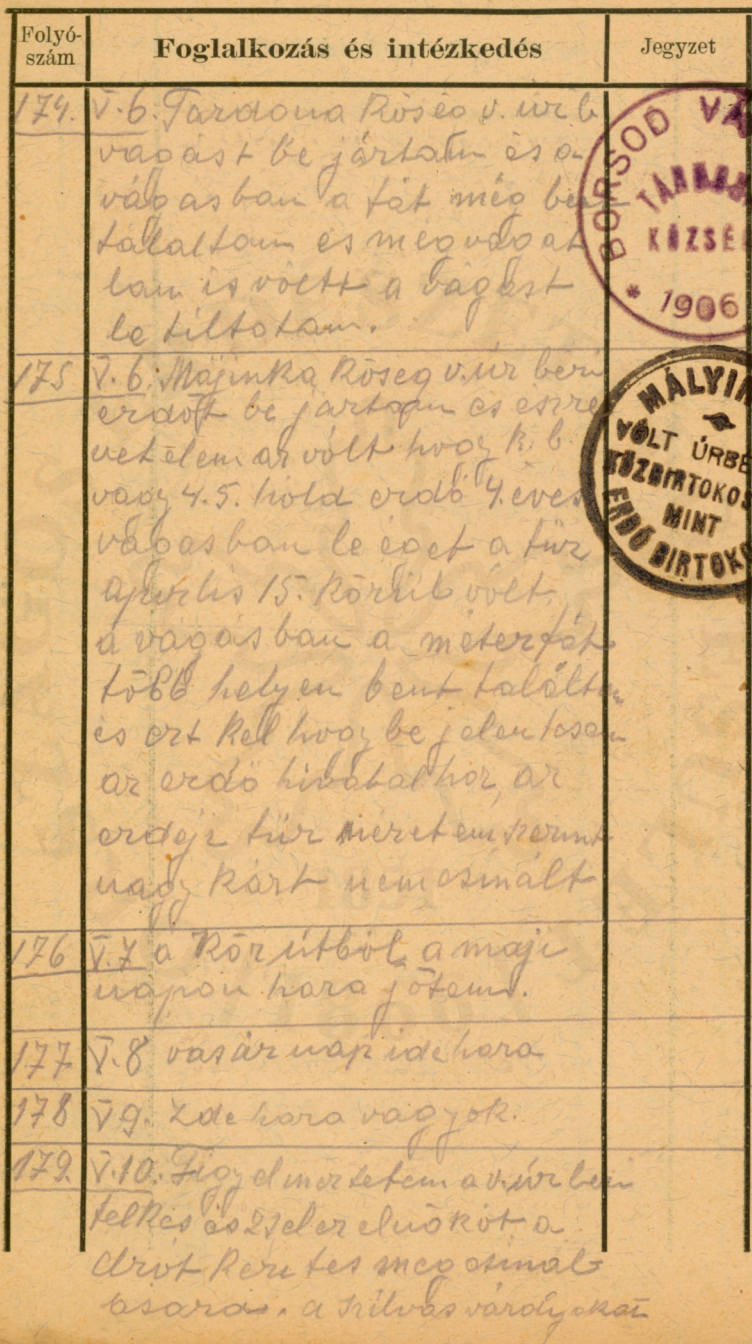 Folyó-
szám
Foglalkozás és intézkedés
Jegyzet
174. V.6. Tardona Köség v. úr b
vagást be jártam és a
vágasban a fát még ben
találtam es megvágat
lan is vóltt a vágást
le tiltotam.
BORSOD VÁ
KÖZSÉ
* 1906
175 V.6. Májinka Köseg v. úr béri
erdőtt be jártam es eszre
vetelem az vólt hogy k. b.
vagy 4.5. hold erdő 4. éves
vágasban le éget a tűz
15. körűl vólt
a vágásban a méterfát
több helyen bent találtam
és ezt kel hogy be jelentesem
az erdő hivatal hoz, az
erdeji tűz szerint
nagy kárt nem csinált
MÁLYIN
VOLT ÚRBE
KÖZBIRTOKOS
MINT
ERDŐ BIRTOKO
176 V.7 a Kőrútból a maji
napon haza jőtem.
177 V.8 vasárnap idehaza
178 V.9. Idehaza vagyok.
179. V.10. Figyelmeztetem a v. úr beri
telkes és zseler elnőkőt a
drót kerítes megcsinál
asara. a szilvásvárdyakat